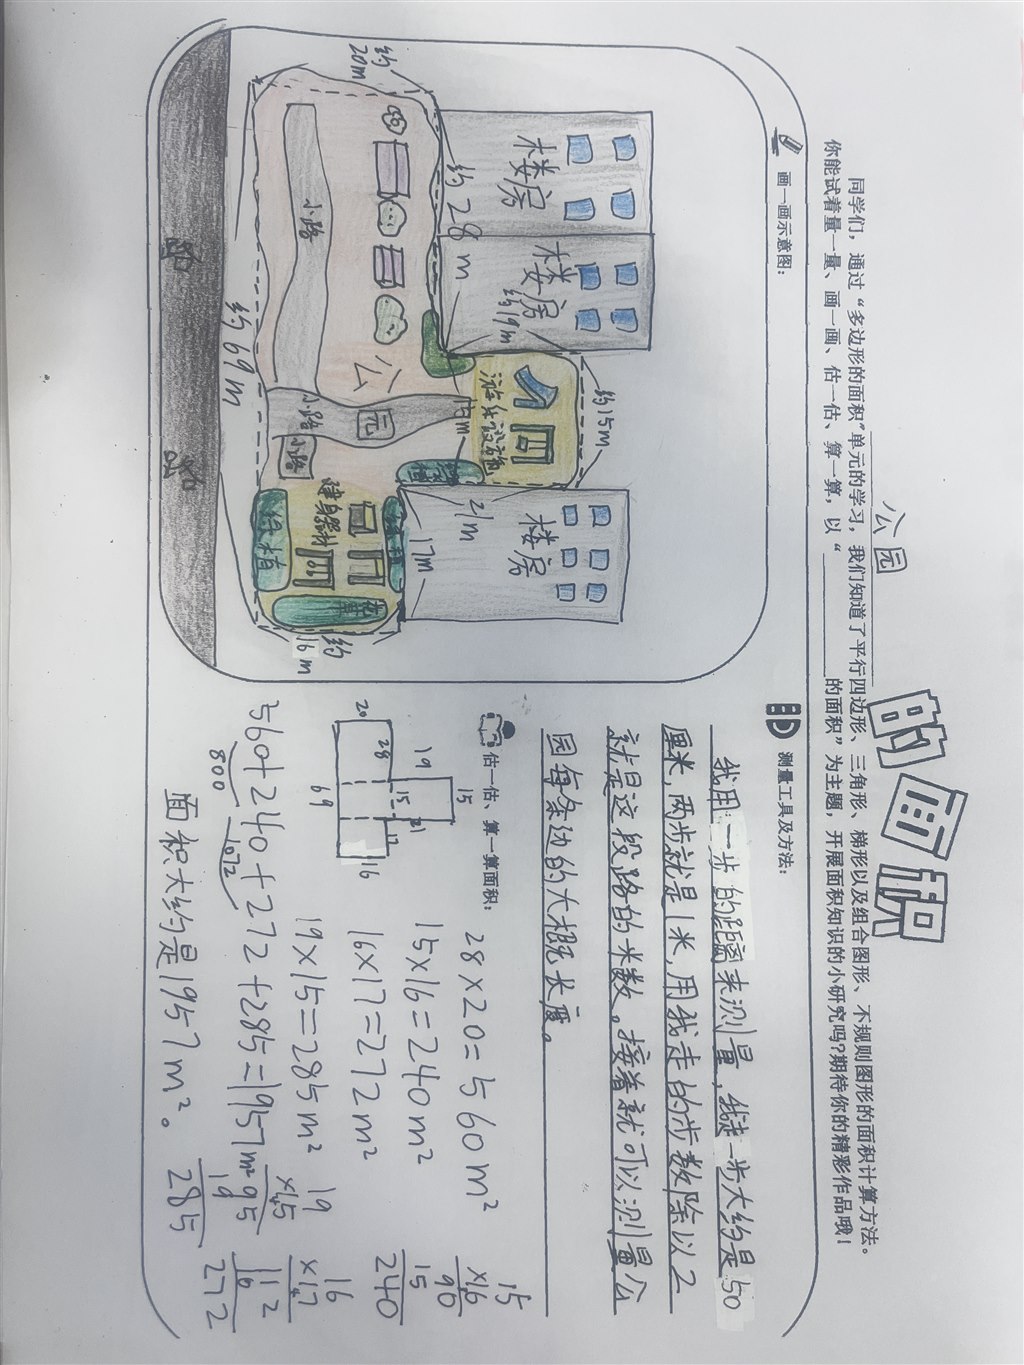 公园的面积
同学们，通过“多边形的面积”单元的学习，我们知道了平行四边形、三角形、梯形以及组合图形、不规则图形的面积计算方法。
你能试着量一量、画一画、估一估、算一算，以“________的面积”为主题，开展面积知识的小研究吗?期待你的精彩作品哦!
画一画示意图：
楼房
楼房
约19m
约15m
楼房
约20m
约28m
游乐设施
15m
21m
17m
公
园
小路
小路
小路
健身器材
约16m
约69m
路
路
测量工具及方法：
我用一步的距离来测量，我走一步大约是50
厘米，两步就是1米，用我走的步数除以2
就是这段路的米数。接着就可以测量公
园每条边的大概长度。
估一估、算一算面积：
19
15
28
20
15
21
17
16
69
28×20=560m²
15×16=240m²
16×17=272m²
19×15=285m²
560+240+272+285=1957m²
800
1072
面积大约是1957m²。
15
×16
90
15
240
16
×17
112
16
272
19
×15
95
19
285